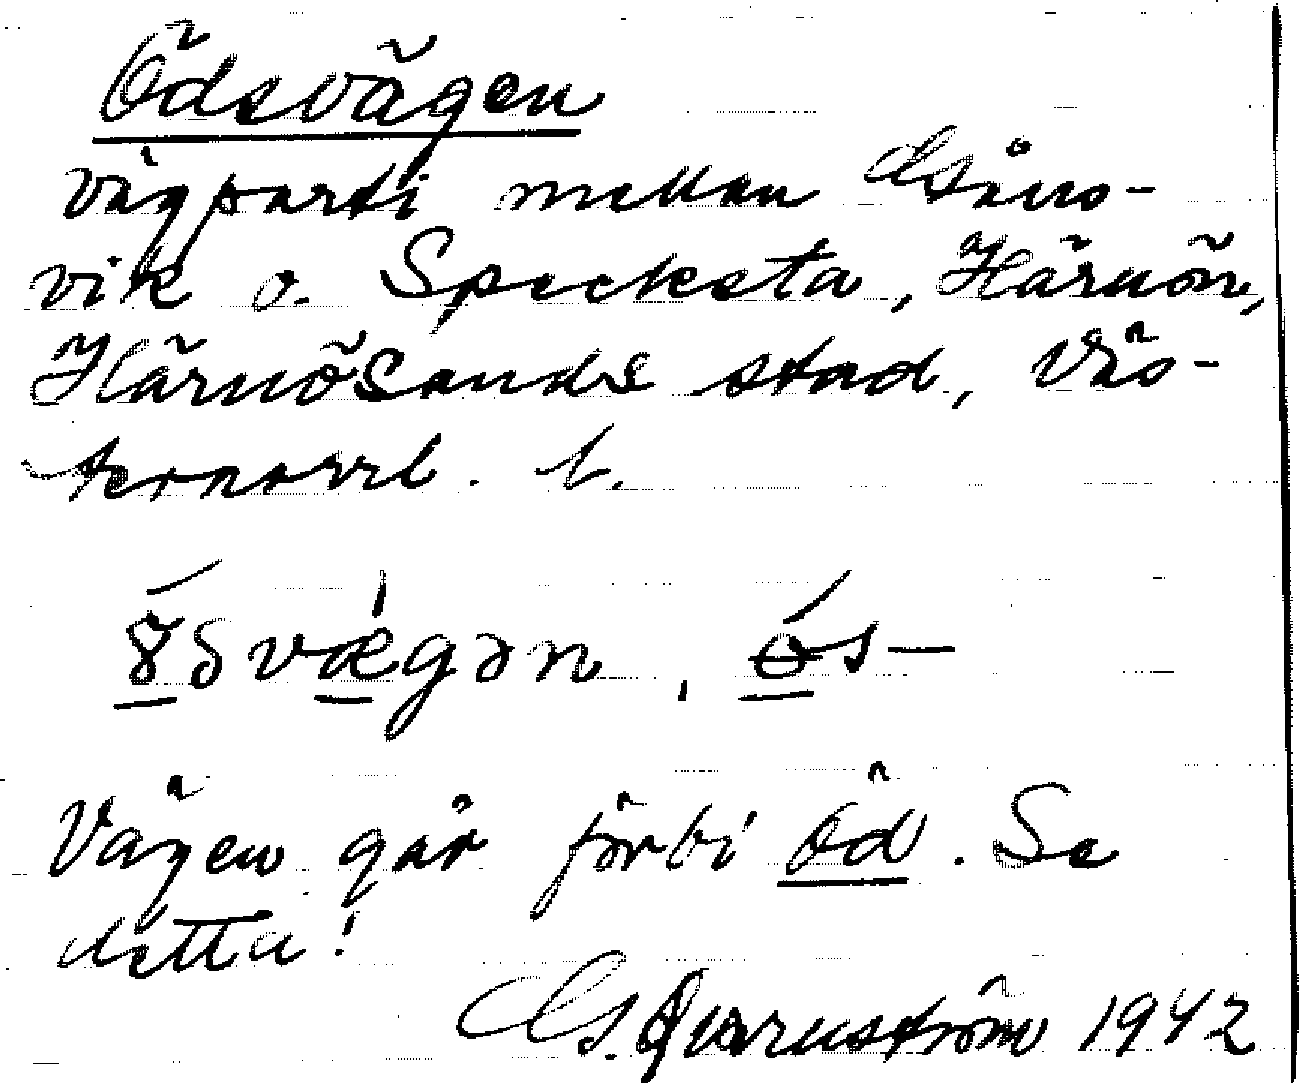 Ödsvägen
vägparti mellan Gåns-
vik o. Specksta, Härnön,
Härnösands stad, Väs-
ternorrl. l.
ɣ́ðvǽgən, ǿs—
Vägen går förbi Öd. Se
detta!
G. Qvarnström 1942